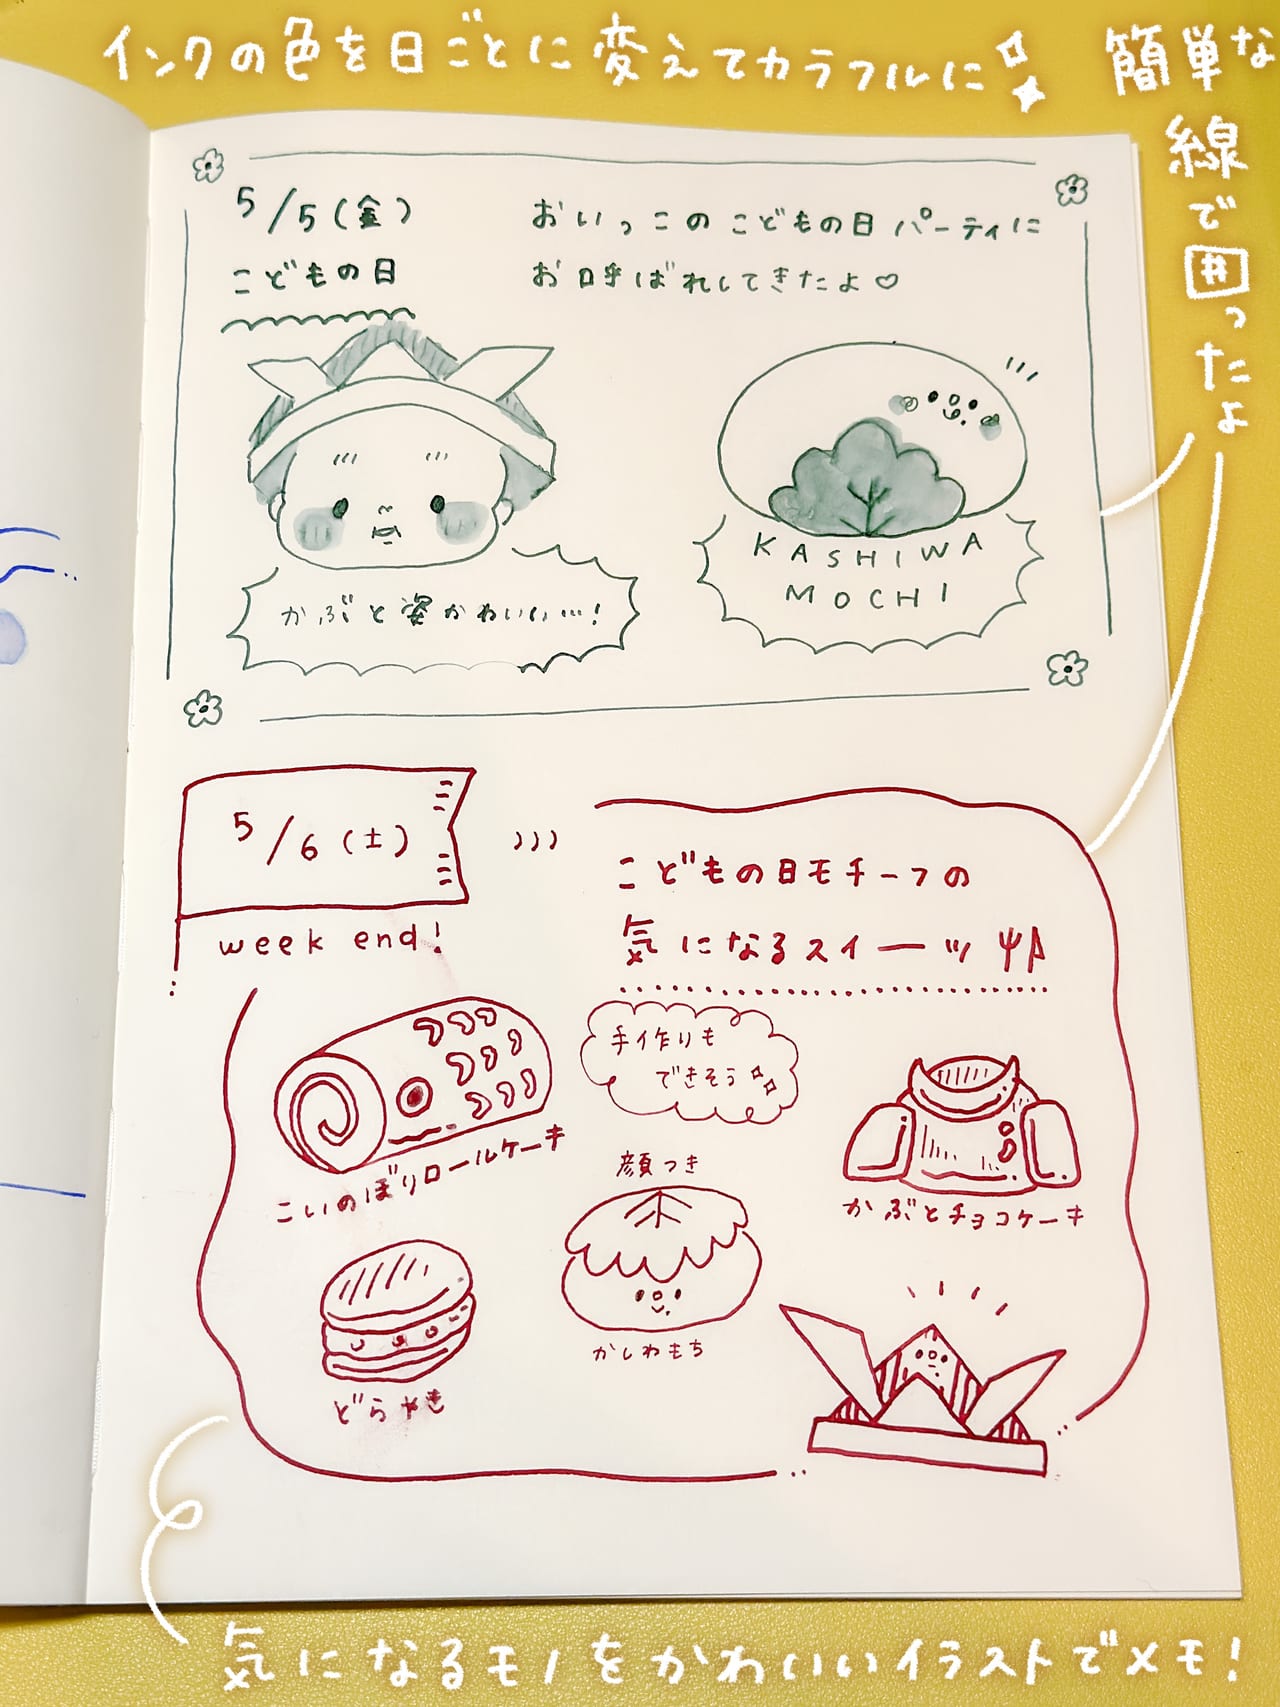 インクの色を日ごとに変えてカラフルに
簡単な
線で囲ったよ
5/5(金)
こどもの日
おいっこのこどもの日パーティに
お呼ばれしてきたよ♡
かぶと姿かわいい…!
KASHIWA
MOCHI
5/6(土)
week end!
こどもの日モチーフの
気になるスイーツ
手作りも
できそう
こいのぼりロールケーキ
かぶとチョコケーキ
顔つき
かしわもち
どらやき
気になるモノをかわいいイラストでメモ!